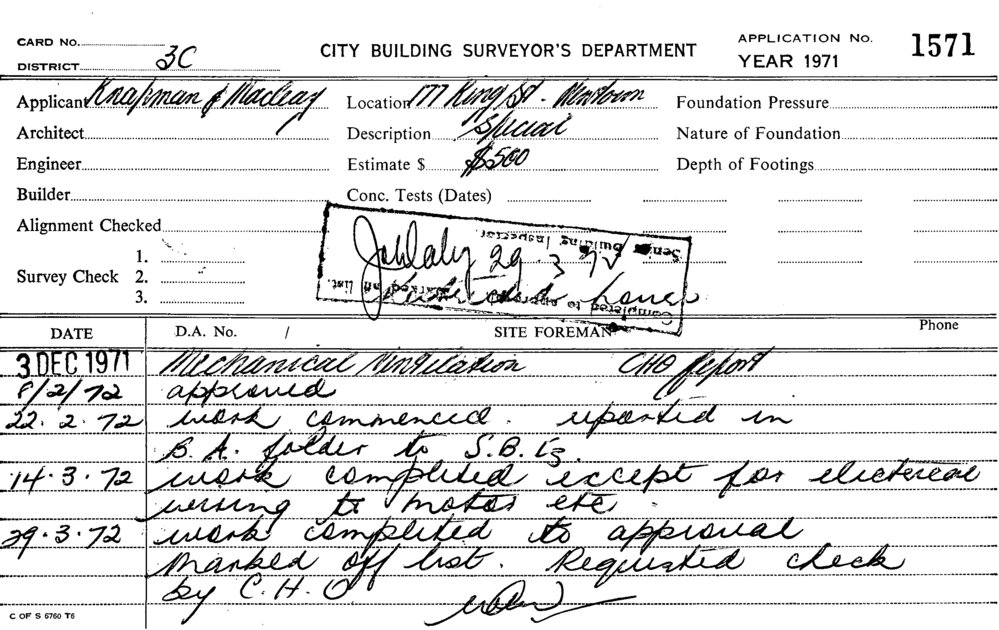 CARD No.
DISTRICT 3C
CITY BUILDING SURVEYOR'S DEPARTMENT
APPLICATION No. 1571
YEAR 1971
Applicant Knapman & Macleay
Location 177 King St. Newtown
Foundation Pressure
Architect
Description Special
Nature of Foundation
Engineer
Estimate $ $500
Depth of Footings
Builder
Conc. Tests (Dates)
Alignment Checked
Survey Check 1.
2.
3.
Senior Building Inspector
29 3 72
Completed to approval marked off list
DATE
D.A. No. /
SITE FOREMAN
Phone
3 DEC 1971 Mechanical Ventilation CHO Report
8/2/72 approved
22.2.72 work commenced. reported in
B.A. folder to S.B.
14.3.72 work completed except for
wiring to motor etc
29.3.72 work completed to approval
marked off list. Requested check
by C.H.O.
C OF S 6760 T6